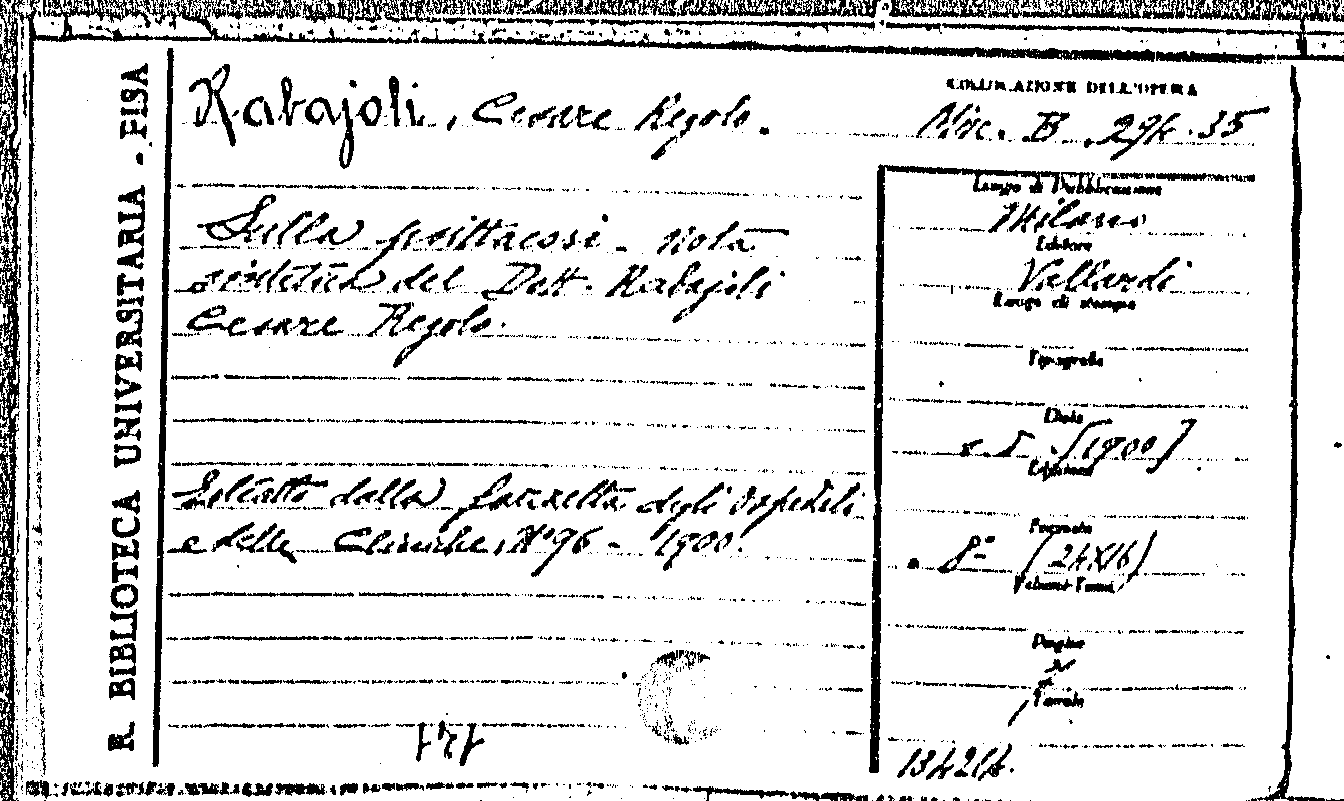 R. BIBLIOTECA UNIVERSITARIA - PISA
Rabajoli, Cesare Regolo.
COLLOCAZIONE DELL'OPERA
Misc. B. 294.35
Sulla psittacosi - Nota
sintetica del Dott. Rabajoli
Cesare Regolo.
Estratto dalla Gazzetta degli Ospedali
e delle Cliniche, N° 96 - 1900.
Luogo di Pubblicazione
Milano
Editore
Vallardi
Luogo di stampa
Tipografia
Data
s. d. [1900]
Edizione
Formato
8° (24x16)
Volumi-Tomi
Pagine
Tavole
141